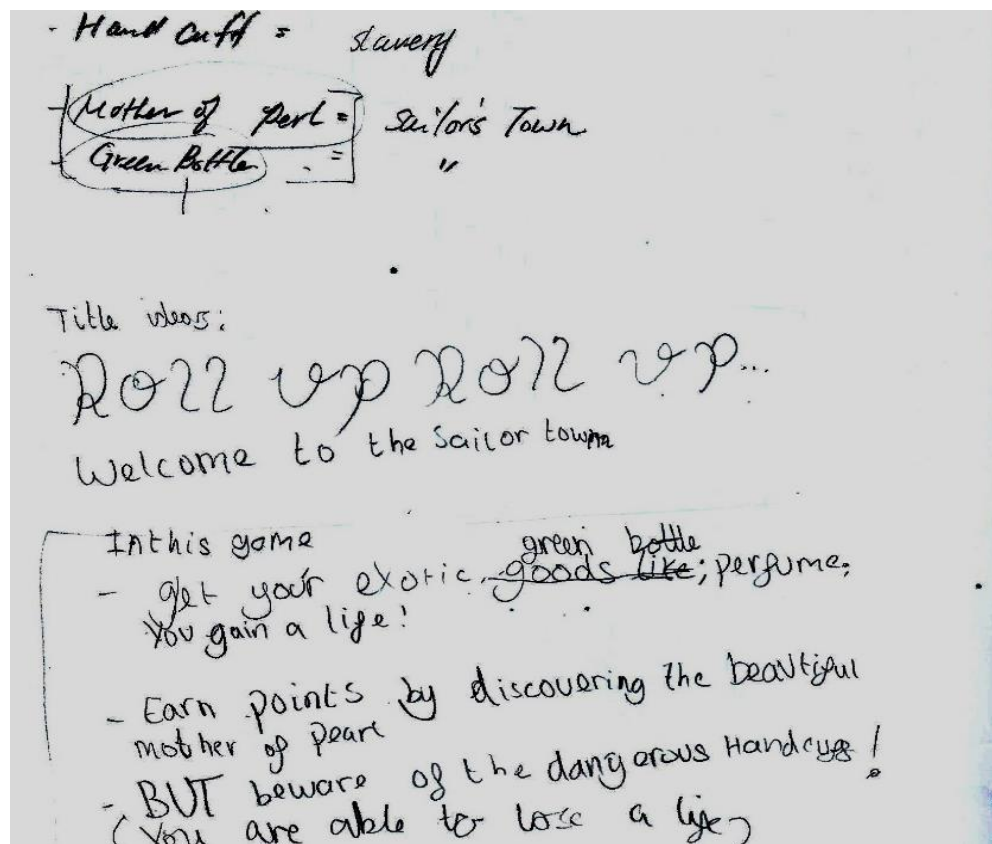 - Hand cuff = slavery
- Mother of perl = Sailor's Town
- Green Bottle = "
Title ideas:
Roll up Roll up...
Welcome to the Sailor town
In this game
green bottle
- get your exotic goods like; perfume;
You gain a life!
- Earn points by discovering the beautiful
mother of pearl
- BUT beware of the dangerous Handcuffs!
(You are able to lose a life)